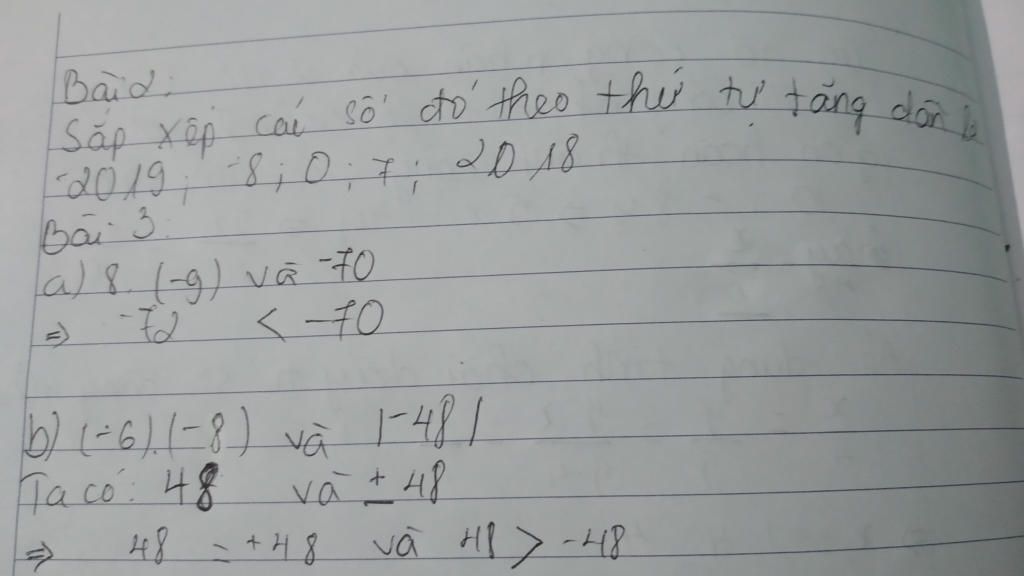 Bài 2:
Sắp xếp cái số đó theo thứ tự tăng dần là
-2019; -8; 0; 7; 2018
Bài 3
a) 8. (-9) và -70
=> -72 < -70
b) (-6).(-8) và |-48|
Ta có: 48 và ± 48
=> 48 = +48 và 48 > -48